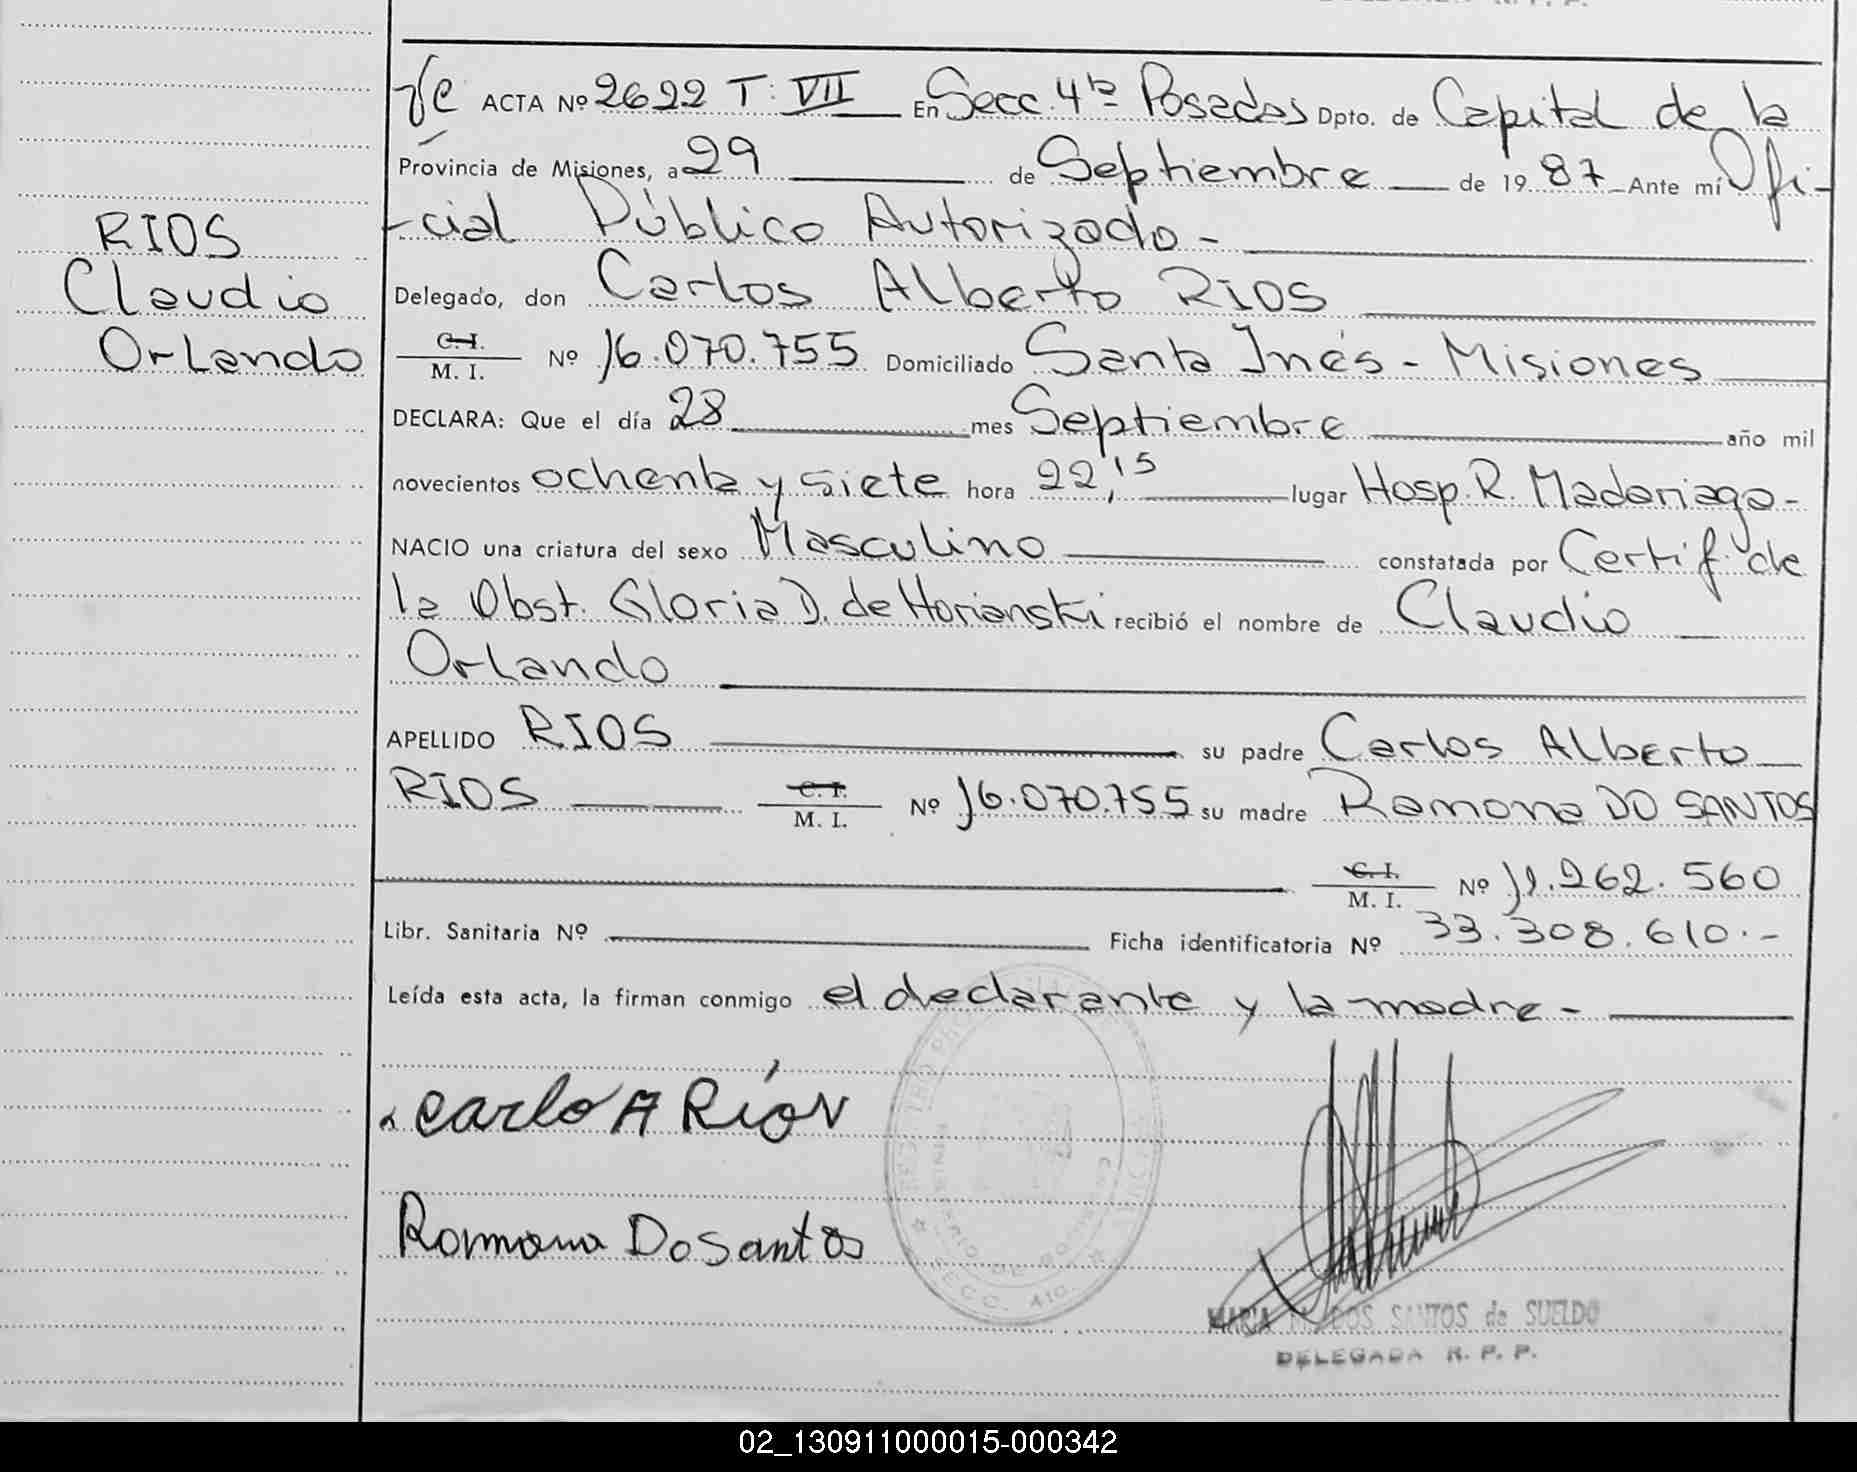 ACTA Nº 2622 T: VII En Secc. 4ta Posadas Dpto. de Capital de la
Provincia de Misiones, a 29 de Septiembre de 19 87 Ante mí Ofi-
-cial Público Autorizado -
RIOS
Claudio
Orlando
Delegado, don Carlos Alberto RIOS
C.I.
M. I. Nº 16.070.755 Domiciliado Santa Inés - Misiones
DECLARA: Que el día 28 mes Septiembre año mil
novecientos ochenta y siete hora 22,15 lugar Hosp. R. Madariaga-
NACIO una criatura del sexo Masculino constatada por Certif. de
la Obst. Gloria D. de Horianski recibió el nombre de Claudio
Orlando
APELLIDO RIOS su padre Carlos Alberto
RIOS C. I. M. I. Nº 16.070.755 su madre Ramona DO SANTOS
C. I.
M. I. Nº 11.262.560
Libr. Sanitaria Nº Ficha identificatoria Nº 33.308.610.-
Leída esta acta, la firman conmigo el declarante y la madre -
Carlo A Ríos
Romona Do Santos
SECC. 4ta.
MARIA M. DOS SANTOS de SUELDO
DELEGADA R. P. P.
02_130911000015-000342